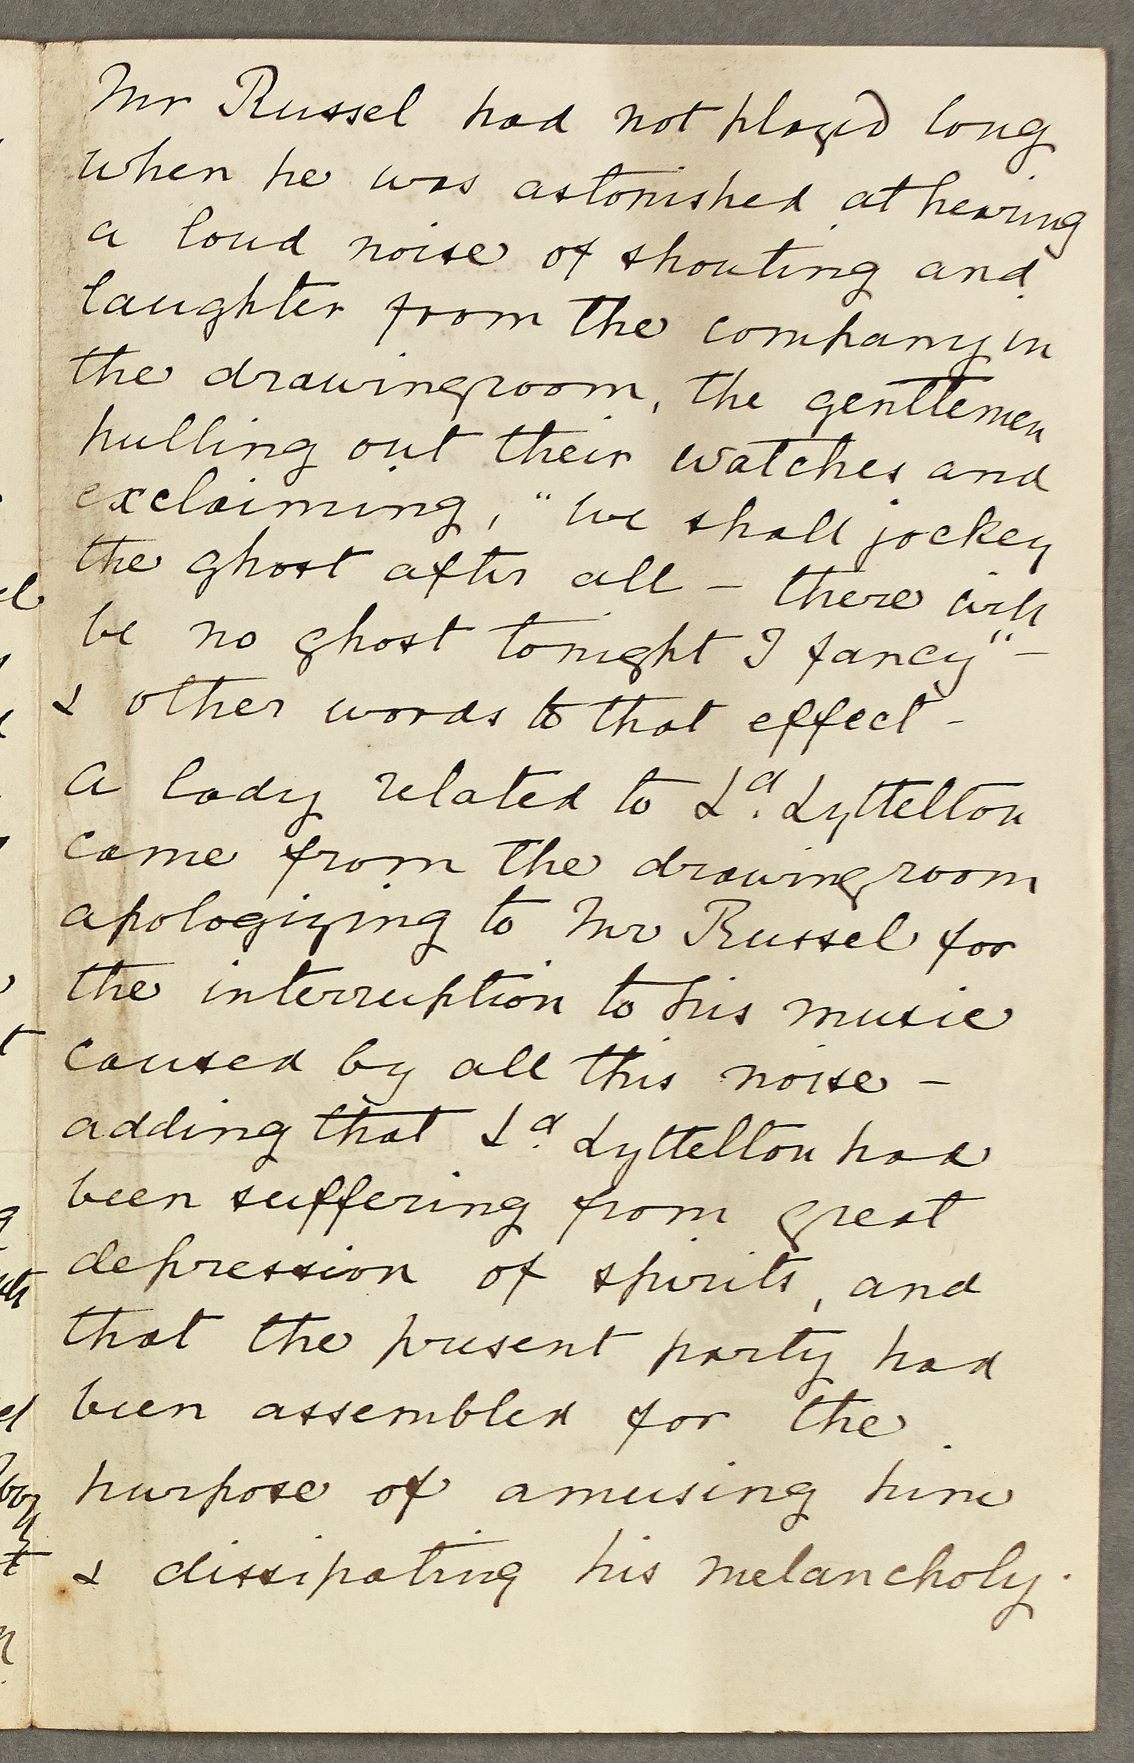 Mr Russel had not played long
when he was astonished at hearing
a loud noise of shouting and
laughter from the company in
the drawingroom, the gentlemen
pulling out their watches and
exclaiming, "We shall jockey
the ghost after all - there will
be no ghost tonight I fancy" -
& other words to that effect -
A lady related to Ld. Lyttelton
came from the drawingroom
apologizing to Mr Russel for
the interruption to his music
caused by all this noise -
adding that Ld. Lyttelton had
been suffering from great
depression of spirits, and
that the present party had
been assembled for the
purpose of amusing him
& dissipating his melancholy.